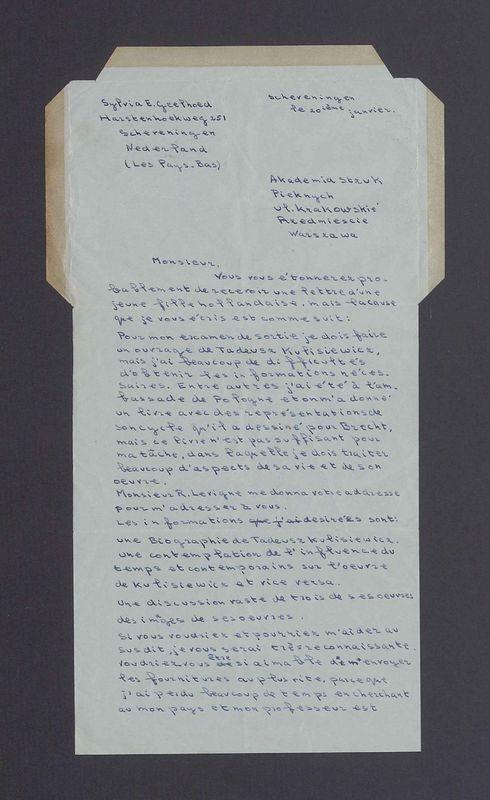 Sylvia E. Geelhoed
Harstenhoekweg 251
Scheveningen
Nederland
(Les Pays-Bas)
Scheveningen
le 20ième janvier.
Akademia Sztuk
Pieknych
ul. Krakowskié
Przedmiescie
Warszawa
Monsieur,
Vous vous étonnerez pro-
bablement de recevoir une lettre d'une
jeune fille hollandaise, mais la cause
que je vous écris est comme suit:
Pour mon examen de sortie je dois faire
un ouvrage de Tadeusz Kulisiewicz,
mais j'ai beaucoup de difficultés
d'obtenir les informations néces-
saires. Entre autres j'ai été à l'am-
bassade de Pologne et on m'a donné
un livre avec des représentations de
son cycle qu'il a dessiné pour Brecht,
mais ce livre n'est pas suffisant pour
ma tâche, dans laquelle je dois traiter
beaucoup d'aspects de sa vie et de son
oeuvre.
Monsieur R. Levigne me donna votre addresse
pour m'adresser à vous.
Les informations que j'ai desirées sont:
une Biographie de Tadeusz Kulisiewicz.
une contemplation de l'influence du
temps et contemporains sur l'oeuvre
de Kulisiewicz et vice versa.
une discussion vaste de trois de ses oeuvres
des images de ses oeuvres.
Si vous voudriez et pourriez m'aider au
susdit, je vous serai très reconnaissante.
voudriez vous être si aimable de m'envoyer
les fournitures au plus vite, parce que
j'ai perdu beaucoup de temps en cherchant
au mon pays et mon professeur est